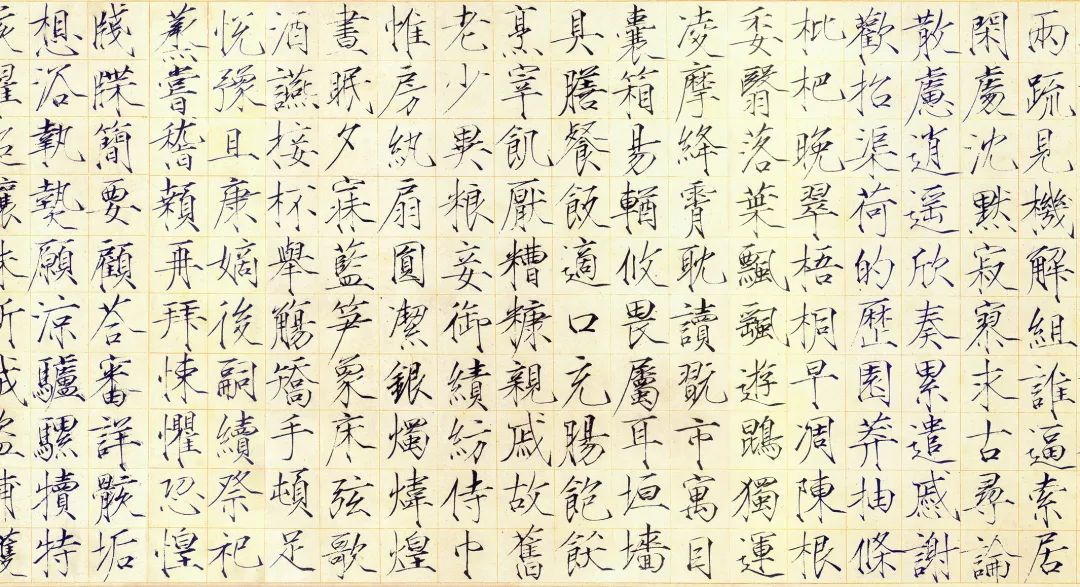 兩疏見機解組誰逼索居
閑處沈默寂寥求古尋論
散慮逍遥欣奏累遣慼謝
歡招渠荷的歷園莽抽條
枇杷晚翠梧桐早凋陳根
委翳落葉飄颻遊鵾獨運
凌摩絳霄耽讀翫市寓目
囊箱易輶攸畏屬耳垣墻
具膳餐飯適口充腸飽飫
烹宰飢厭糟糠親戚故舊
老少異粮妾御績紡侍巾
惟房紈扇圓潔銀燭煒煌
晝眠夕寐藍笋象床弦歌
酒讌接杯舉觴矯手頓足
悅豫且康嫡後嗣續祭祀
蒸嘗稽顙再拜悚懼恐惶
牋牒簡要顧荅審詳骸垢
想浴執熱願涼驢騾犢特